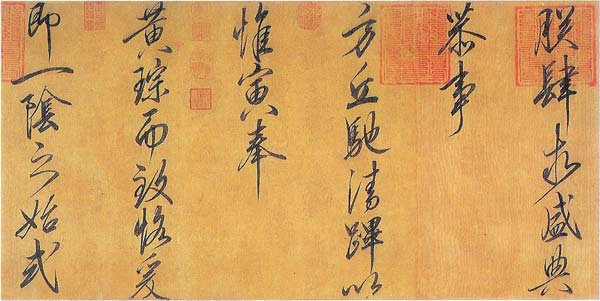 朕肆求盛典
恭事
方丘馳清蹕以
惟寅奉
黃琮而致恪爰
即一陰之始式